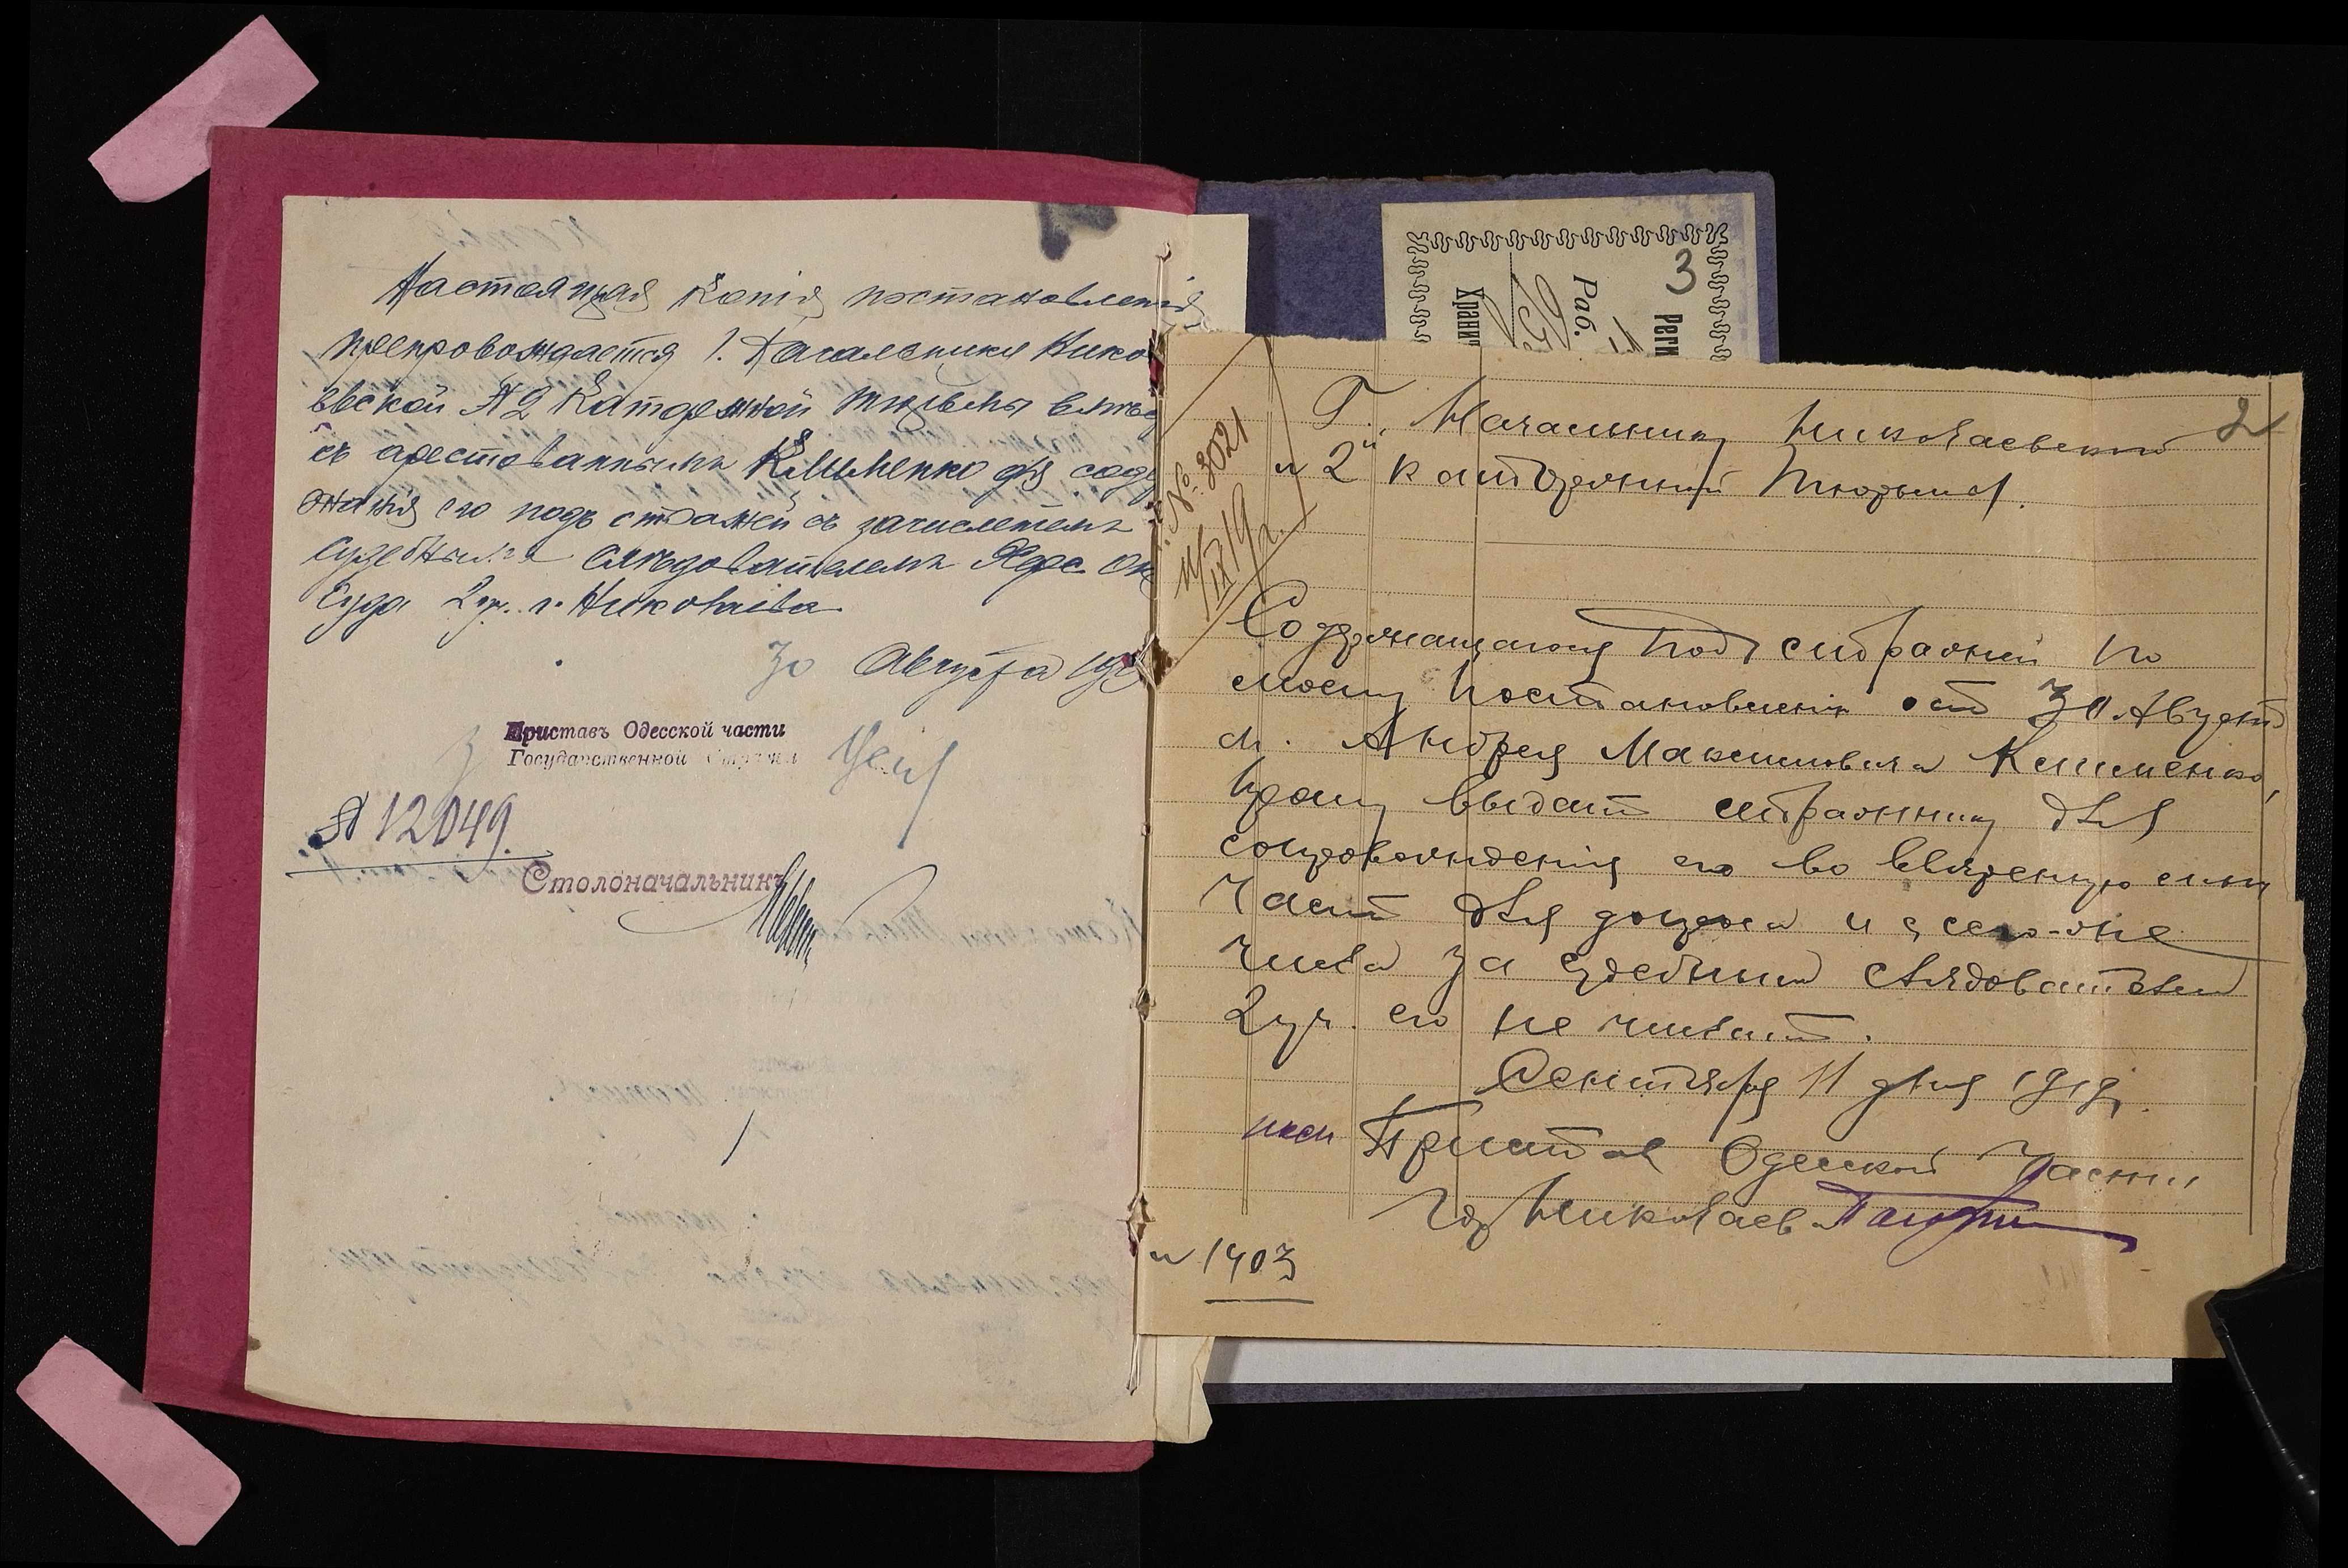 Настоящая копія постановленія
препровождается Г. Начальнику Нико
евской №2 Каторжной тюрьмы вмѣс
съ арестованнымъ Клименко для соде
жанія его подъ стражей съ зачисленіемъ
Судебнымъ Слѣдователемъ Херс Ок
Суда 2 уч. г. Николаева
30 Августа 191
Приставъ Одесской части
Государственной Стражи
№ 12049.
Столоначальникъ
3 Реги
Раб.
Хранит
2
№ 3021
11/IX 19 г.
Г. Начальнику Николаевской
№ 2й каторжной тюрьмы.
Содержащагося под стражей по
моему постановленію от 30 Августа
м. Андрея Максимовича Клименко,
прошу выдать стражнику для
сопровождения его во вверенную мне
часть для допроса и с сего-же
числа за судебным следователем
2 уч. его не числить.
Сентября 11 дня 1919 г.
Пристав Одесской Части
гор Николаев
№ 1403